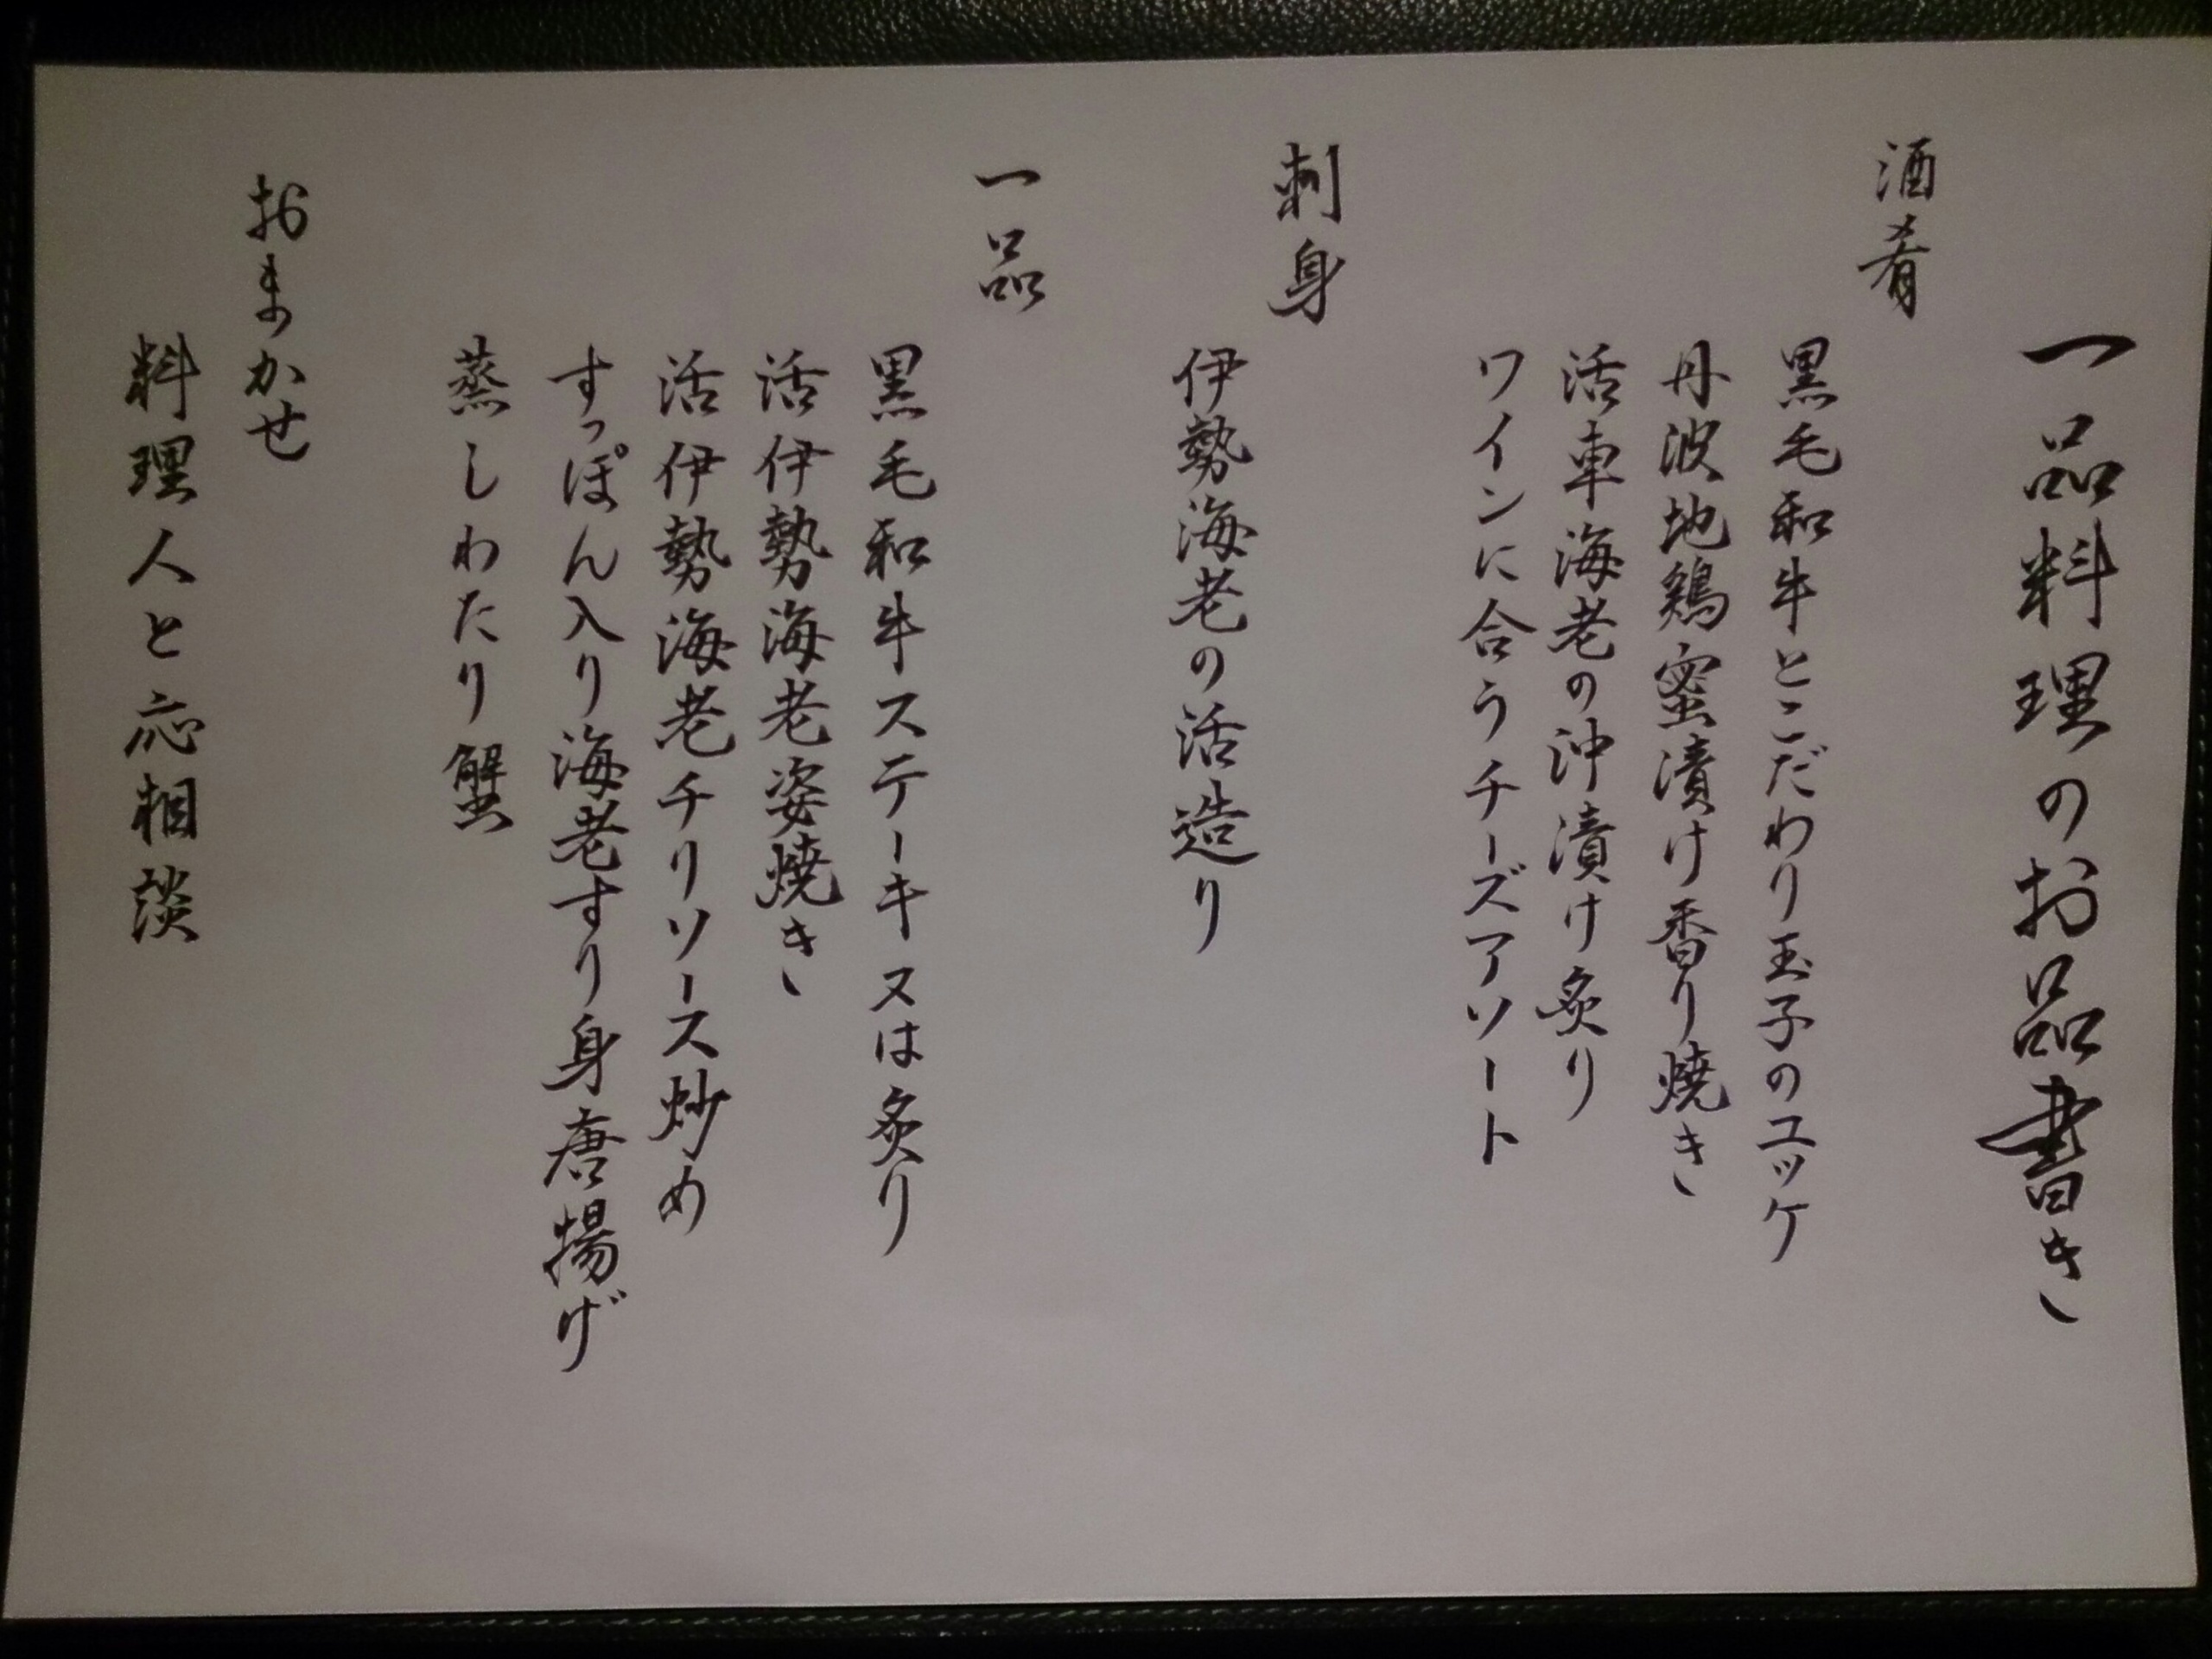 一品料理のお品書き
酒肴
黒毛和牛とこだわり玉子のユッケ
丹波地鶏蜜漬け香り焼き
活車海老の沖漬け炙り
ワインに合うチーズアソート
刺身
伊勢海老の活造り
一品
黒毛和牛ステーキ又は炙り
活伊勢海老姿焼き
活伊勢海老チリソース炒め
すっぽん入り海老すり身唐揚げ
蒸しわたり蟹
おまかせ
料理人と応相談